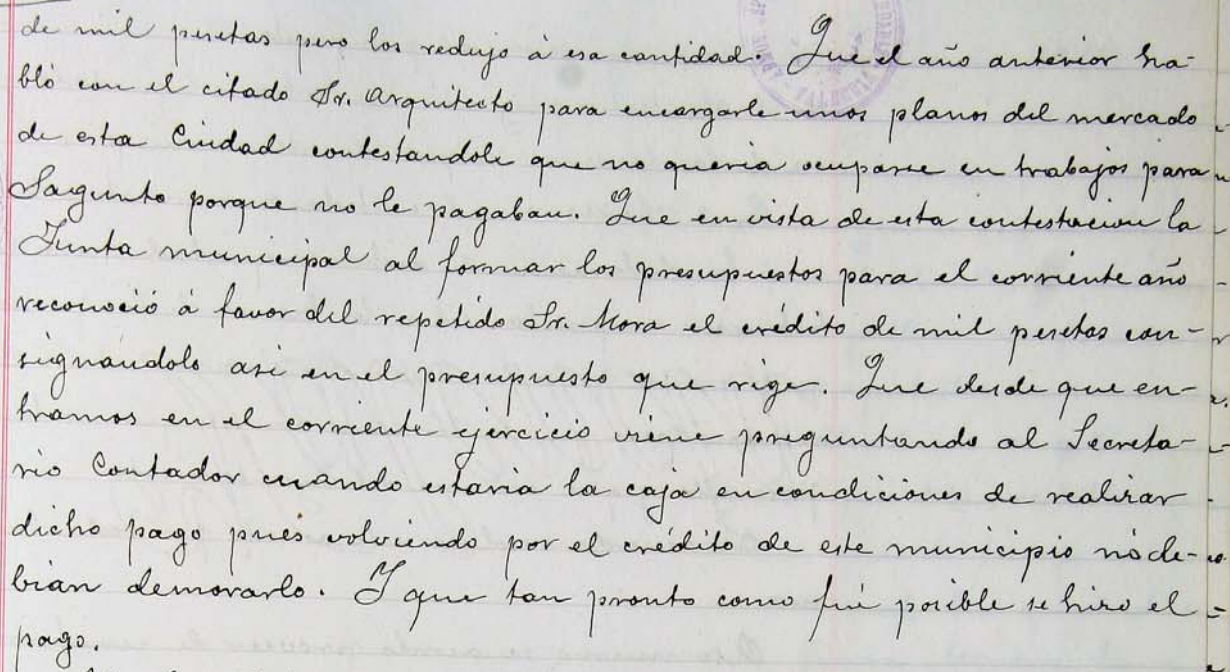 de mil pesetas pero los redujo á esa cantidad. Que el año anterior ha-
bló con el citado Sr. Arquitecto para encargarle unos planos del mercado
de esta Ciudad contestandole que no queria ocuparse en trabajos para
Sagunto porque no le pagaban. Que en vista de esta contestacion la
Junta municipal al formar los presupuestos para el corriente año
reconoció á favor del repetido Sr. Mora el crédito de mil pesetas con-
signandolo asi en el presupuesto que rige. Que desde que en-
tramos en el corriente ejercicio viene preguntando al Secreta-
rio Contador cuando estaria la caja en condiciones de realizar
dicho pago pues volviendo por el crédito de este municipio no de-
bian demorarlo. Y que tan pronto como fué posible se hizo el
pago.